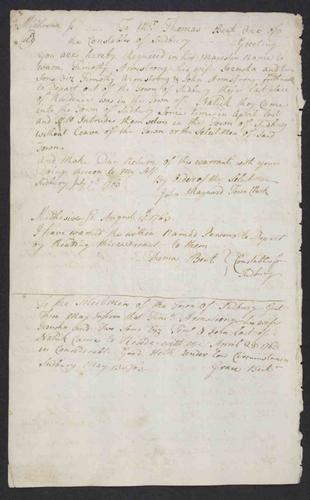 Middlesex Ss To Mr. Thomas Bent one of
the Constables of Sudbury Greeting
You are hereby Required in his Majesties Name to
warn Timothy Armstrong his wife and two
Sons viz Timothy Armstrong & John Armstrong
to Depart out of the Town of Sudbury their last place
of Residence was in the Town of Natick they Came
into the Town of Sudbury Some time in April last
and Still Intrudes themselves in the Town of Sudbury
without Leave of the Town or the Selectmen of Said
Town.
And make Due Return of this warrant with your
Doings thereon to My Self
Sudbury 1763 By order of the Selectmen
John Maynard Town Clerk
Middlesex Ss. August 1763
I have warned the within Named Persons to Depart
by Reading this warrant to them
Thomas Bent Constable of
Sudbury
To the Selectmen of the Town of Sudbury Gentl
this May Inform that Timo. Armstrong his wife
and Two Sons viz & John Last of
Natick Came to Reside with me April 1763
in Considerable Good Helth under Low Circumstances
Sudbury May 1763 Grace Bent